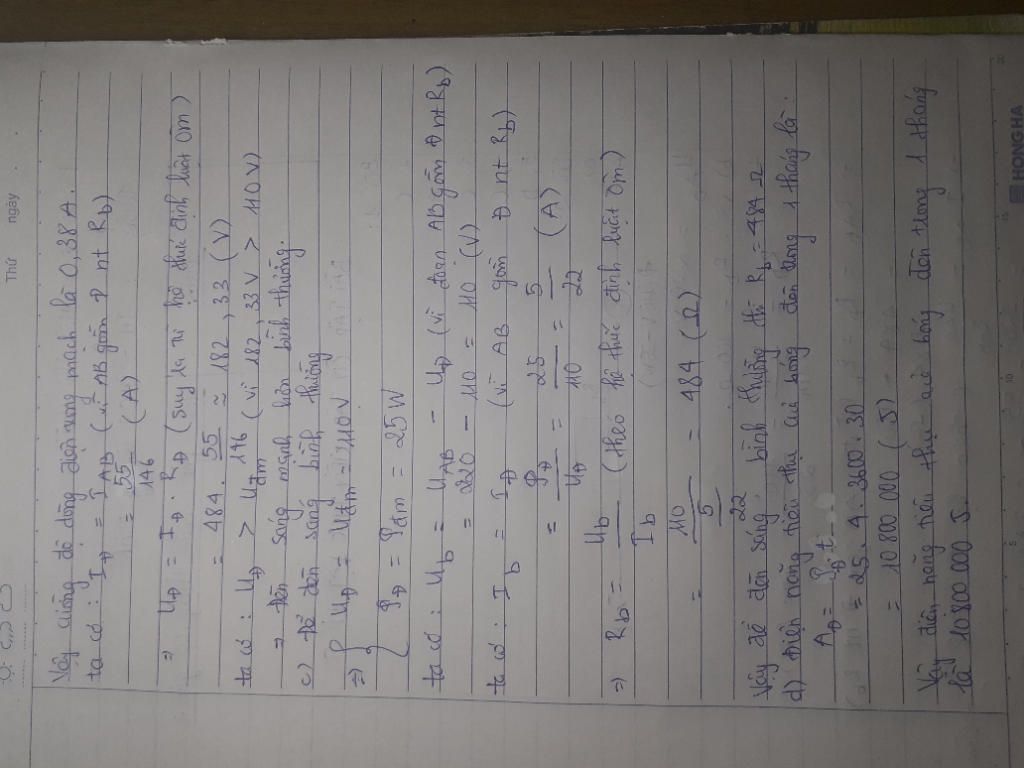 Thứ ngày
Vậy cường độ dòng điện trong mạch là 0,38 A.
ta có : I_Đ = I_AB (vì AB gồm Đ nt R_b)
= 55/146 (A)
⇒ U_Đ = I_Đ . R_Đ (suy ra từ hệ thức định luật Ôm)
= 484 . 55/146 ≈ 182,33 (V)
ta có : U_Đ > U_đm (vì 182,33V > 110V)
⇒ đèn sáng mạnh hơn bình thường.
c) Để đèn sáng bình thường
⇒ { U_Đ = U_đm = 110V
P_Đ = P_đm = 25W
ta có : U_b = U_AB - U_Đ (vì đoạn AB gồm Đ nt R_b)
= 220 - 110 = 110 (V)
ta có : I_b = I_Đ (vì AB gồm Đ nt R_b)
= P_Đ/U_Đ = 25/110 = 5/22 (A)
⇒ R_b = U_b/I_b (theo hệ thức định luật Ôm)
= 110/(5/22) = 484 (Ω)
Vậy để đèn sáng bình thường thì R_b = 484 Ω
d) Điện năng tiêu thụ của bóng đèn trong 1 tháng là :
A_Đ = P_Đ.t
= 25 . 4 . 3600 . 30
= 10 800 000 (J)
Vậy điện năng tiêu thụ của bóng đèn trong 1 tháng
là 10 800 000 J.
HONG HA